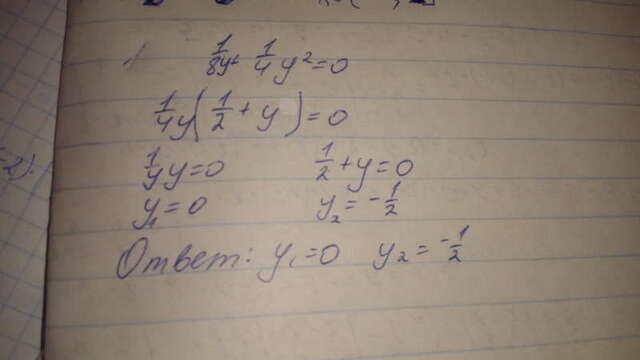 1/8y + 1/4 y² = 0
1/4 y (1/2 + y) = 0
1/4 y = 0 1/2 + y = 0
y₁ = 0 y₂ = - 1/2
Ответ: y₁ = 0 y₂ = - 1/2